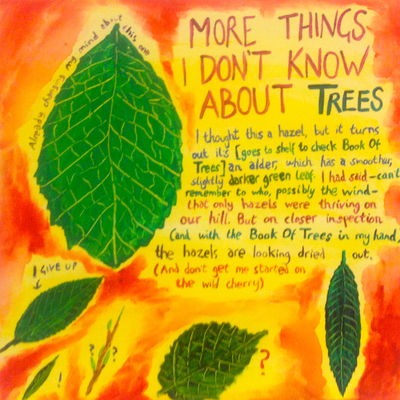 Already changing my mind about this one
MORE THINGS
I DON'T KNOW
ABOUT TREES
I thought this a hazel, but it turns
out it's [goes to shelf to check Book Of
Trees] an alder, which has a smoother,
slightly darker green leaf. I had said – can't
remember to who, possibly the wind –
that only hazels were thriving on
our hill. But on closer inspection
(and with the Book Of Trees in my hand)
the hazels are looking dried out.
(And don't get me started on
the wild cherry)
I GIVE UP
? ?
?
?